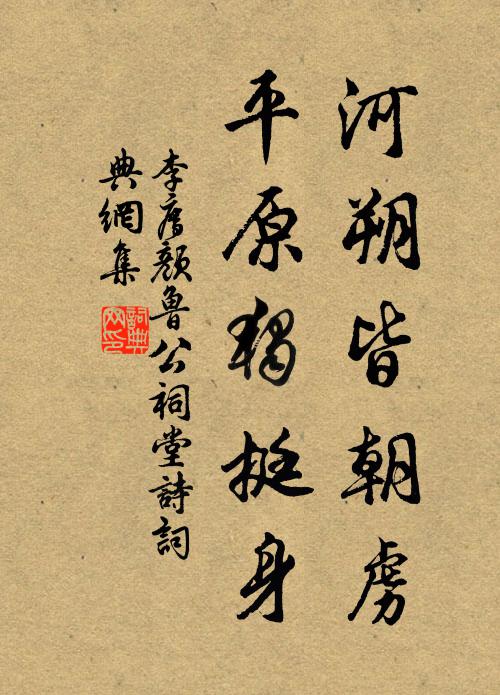 河朔皆朝虏
平原獨挺身
李廌顏魯公祠堂詩詞
典網集
詞典
网印